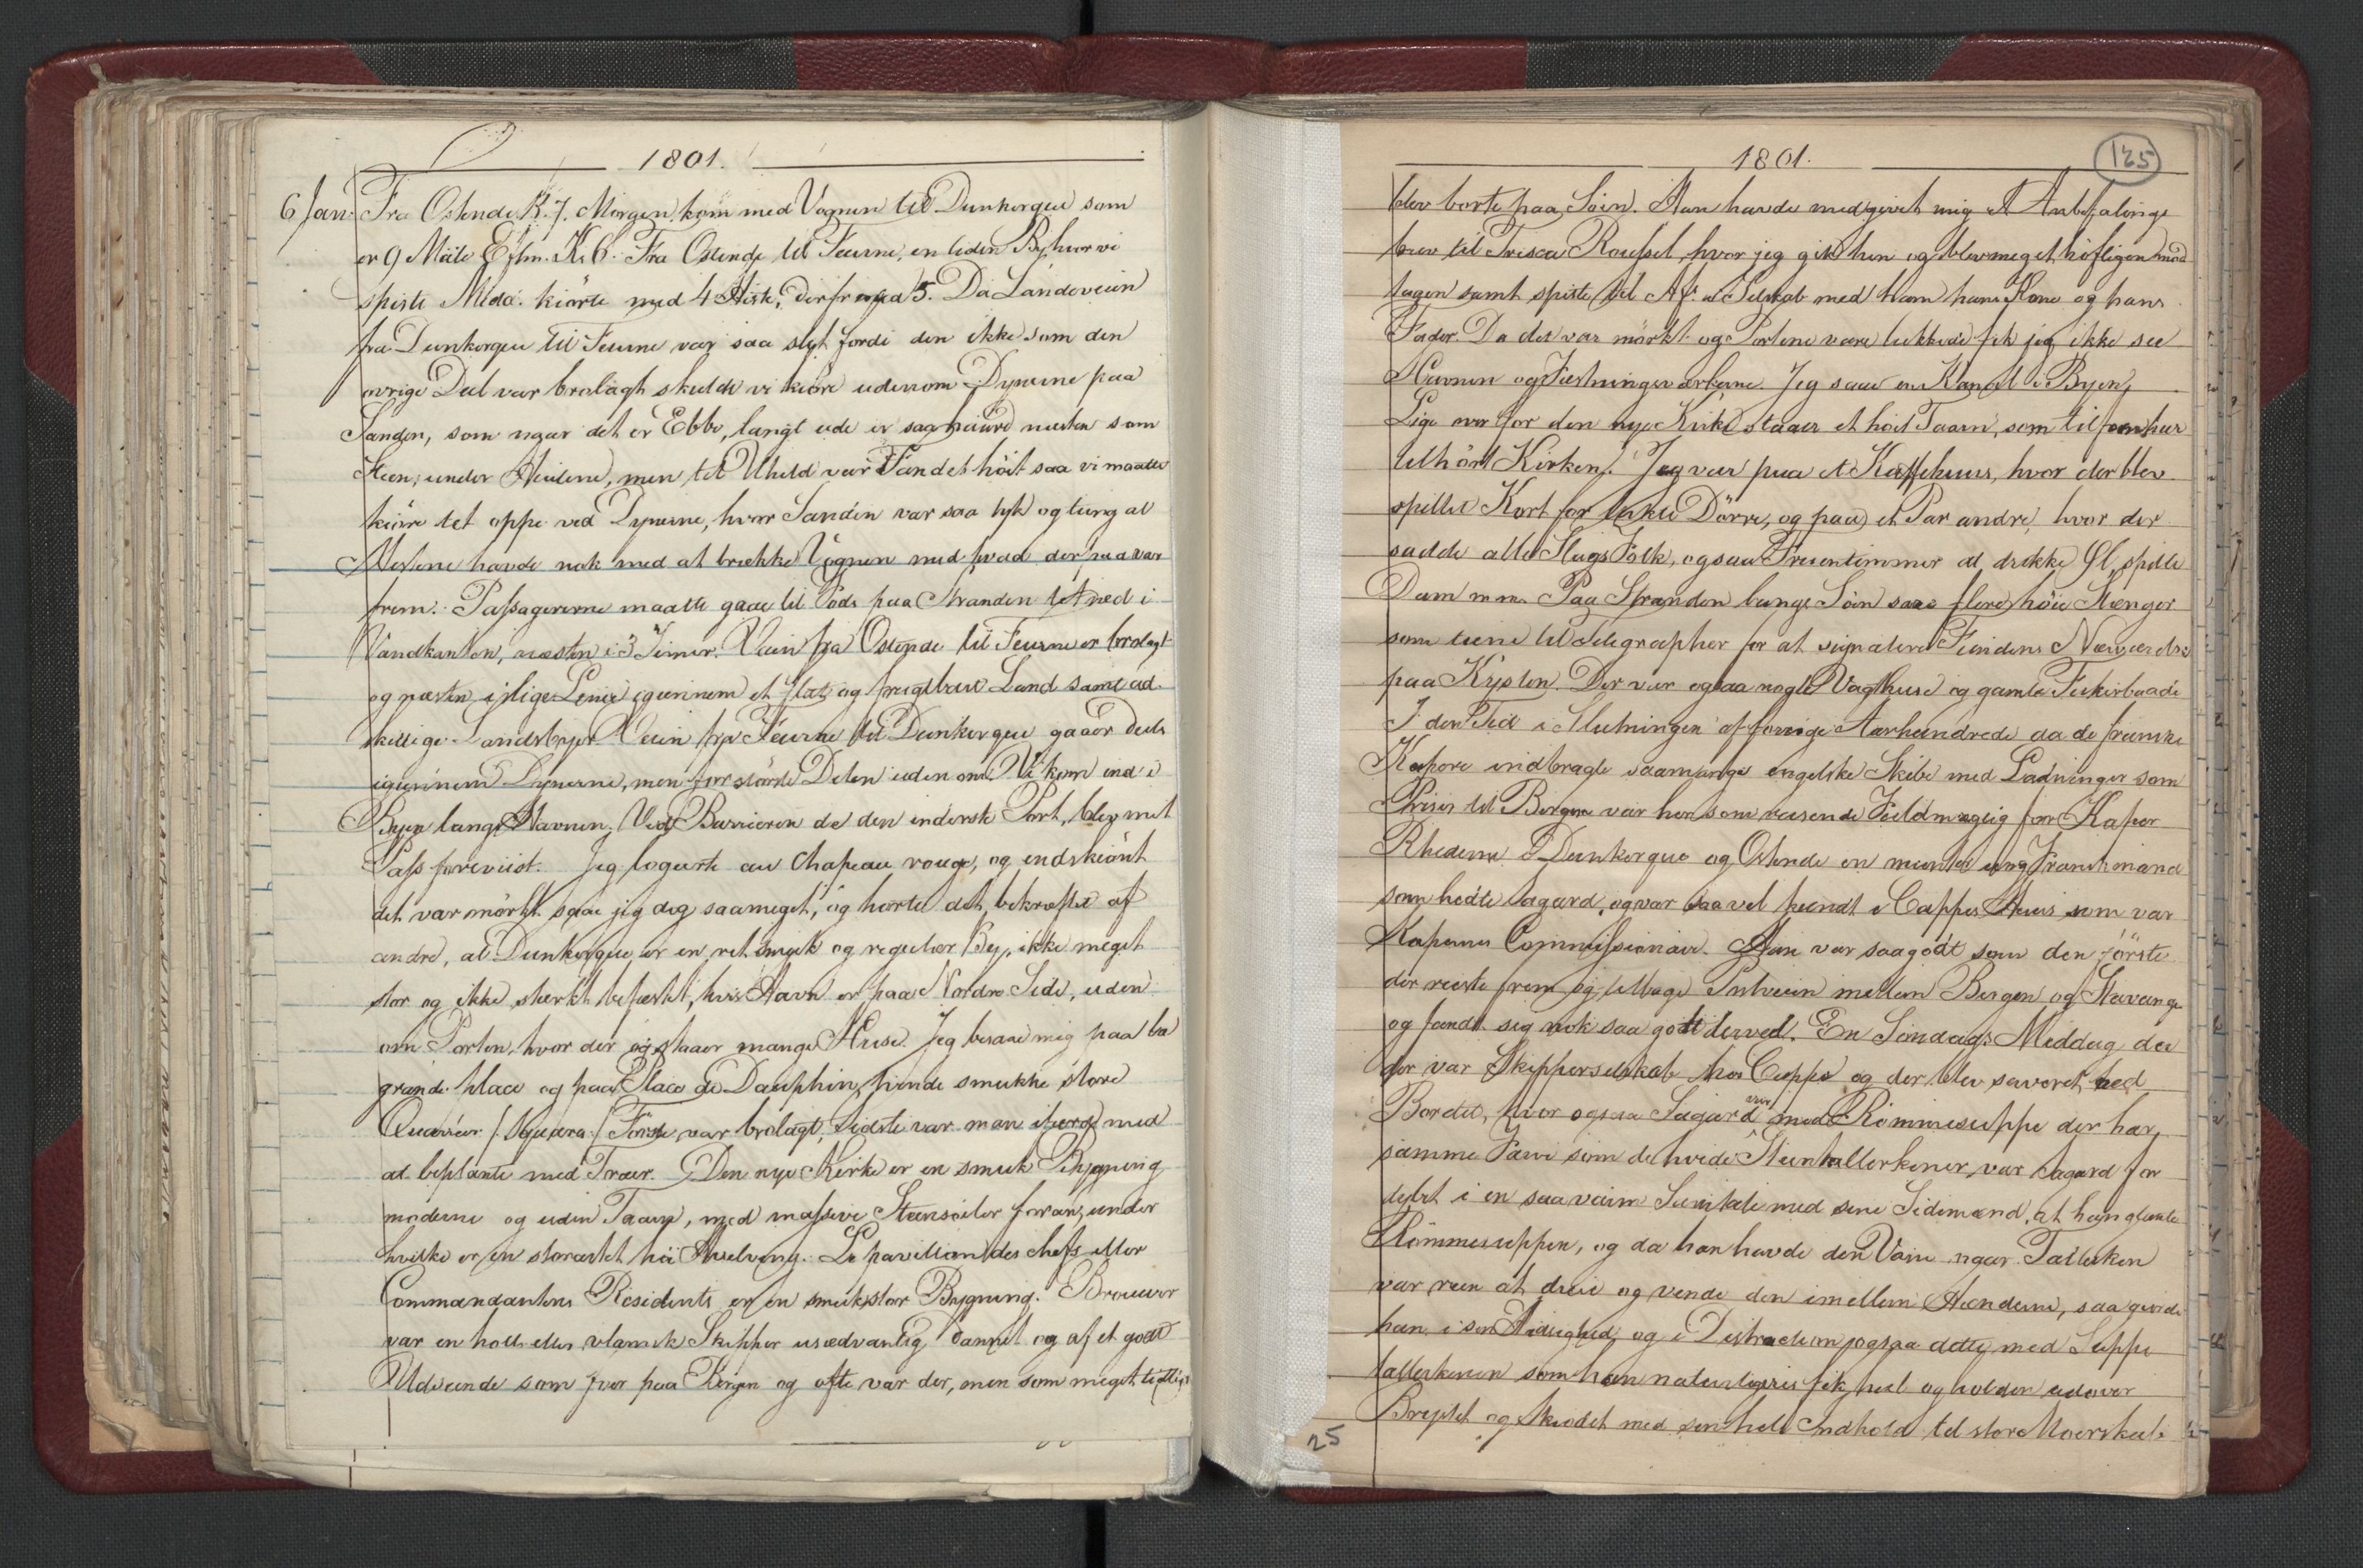 1801.
6 Jan. Fra Ostende K. 7. Morgen, kom med Vognen til Dunkerque som
er 9 Mile Eftm. K. 6. Fra Ostende til Feurne, en liden By hvor vi
spiste Midd. kiörte med 4 Heste, derfra med 5. Da Landeveien
fra Dunkerque til Feurne var saa slet fordi den ikke som den
övrige Deel var brolagt skulde vi kiöre udenom Dynerne paa
Sanden, som naar det er Ebbe, langt ude er saa haard næsten som
Steen, under Hiulene, men til Uheld var Vandet höit saa vi maatte
kiöre tet oppe ved Dynerne, hvor Sanden var saa tyk og tung at
Hestene havde nok med at trække Vognen med hvad derpaa var
frem. Passagererne maatte gaae til Fods paa Stranden tet ned i
Vandkanten, næsten i 3 Timer. Veien fra Ostende til Feurne er brolagt
og næsten i lige Linie igiennem et flat og frugtbart Land samt ad-
skillige Landsbyer. Veien fra Feurne til Dunkerque gaaer deels
igiennem Dynerne, men for störste Delen uden om. Vi kom ind i
Byen langs Havnen. Ved Barrieren da den inderste Port, blev mit
Pass foreviist. Jeg logerte au Chapeau rouge, og endskiönt
det var mörkt saae jeg dog saameget, og hörte det bekræftet af
andre, at Dunkerque er en ret smuk og regulær By, ikke meget
stor og ikke stærkt befæstet, hvis Havn er paa Nordre Side, uden
om Porten, hvor der og staaer mange Huse. Jeg besaae mig paa la
grande place og paa Place de Dauphin, tvende smukke store
Quarréer /: Sqvara :/ Förste var brolagt, sidste var man ifærd med
at beplante med Træer. Den nye Kirke er en smuk Bygning
moderne og uden Taarn, med massive Steensöiler foran, under
hvilke er en storartet höi Hvelving. Le pavillion des chefs eller
Commandantens Residents er en smuk stor Bygning. Brouwer
var en holl. eller vlamsk Skipper usædvanlig dannet og af et godt
Udseende som foer paa Bergen og ofte var der, men som meget tidlig
1801.
125
blev borte paa Söen. Han havde medgivet mig et Anbefalings
brev til Tresca Roussel, hvor jeg gik hen og blev meget höfligen mod
tagen samt spiste til Aft. i Selskab med ham hans Kone og hans
Fader. Da det var mörkt og Portene vare lukkede fik jeg ikke see
Havnen og Fæstningsværkerne. Jeg saae en Kanal i Byen,
Lige over for den nye Kirke staaer et höit Taarn, som tilforn har
tilhört Kirken. Jeg var paa et Kaffehuus, hvor der blev
spillet Kort for lukte Dörre, og paa et Par andre, hvor der
sadde alle Slags Folk, ogsaa Fruentimmer at drikke Öl, spille
Dam m.m. Paa Stranden langs Söen saaes flere höie Stænger
som tiene til Telegrapher for at signalere Fiendens Nærværelse
paa Kysten. Der var ogsaa nogle Vagthuse og gamle Fiskerbaade
I den Tid i Slutningen af forrige Aarhundrede da de franske
Kapere indbragte saamange engelske Skibe med Ladninger som
Priser til Bergen var her som reisende Fuldmægtig for Kaper
Rhederne i Dunkerque og Ostende en munter ung Franskmand
som hedte Sagard, og var saa vel kiendt i Cappes Huus som var
Kapernes Commissionair. Han var saa godt som den förste
der reiste frem og tilbage Postveien mellem Bergen og Stavanger
og fandt sig nok saa godt derved. En Söndags Middag da
der var Skipperselskab hos Cappe og der blev saveret ved
Bordet, hvor ogsaa Sagard var, med Römmesuppe der har
samme Farve som de hvide Steentallerkener, var Sagard for
dybt i en saa varm Samtale med sine Sidemænd, at han glemte
Römmesuppen, og da han havde den Vane naar Tallerken
var reen at dreie og vende den imellem Hænderne, saa giorde
han i sin Ivrighed og i Distraction ogsaa dette med Suppe
tallerkenen som han naturligviis fik heel og holden udover
Brystet og Skiödet med sin hele Indhold til store Moerskab
25